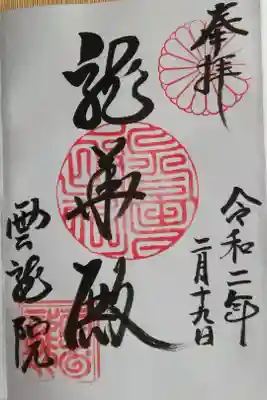 奉拝
令和二年
二月十九日
龍華殿
雲龍院